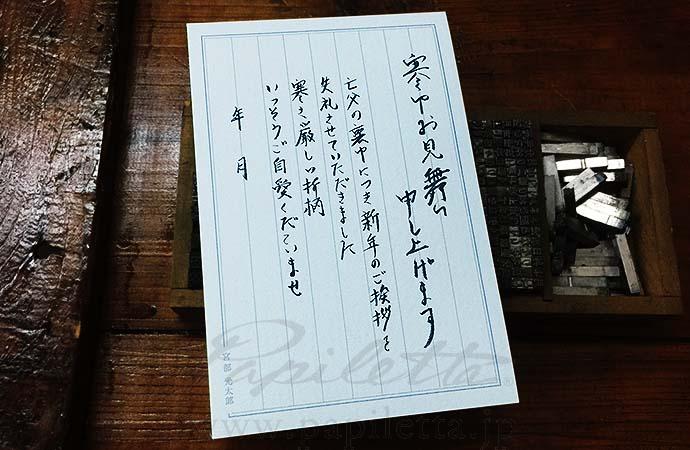 寒中お見舞い
申し上げます
亡父の喪中につき新年のご挨拶を
失礼させていただきました
寒さ厳しい折柄
いっそうご自愛くださいませ
年 月
宮部 光太郎
Papiletta
www.papiletta.jp